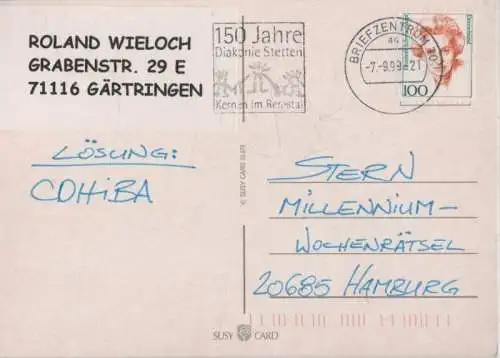 ROLAND WIELOCH
GRABENSTR. 29 E
71116 GÄRTRINGEN
150 Jahre
Diakonie Stetten
Kernen im Remstal
BRIEFZENTRUM 70
-7.-9.99-21
100
LÖSUNG:
COHiBA
© SUSY CARD
STERN
MILLENNIUM-
WOCHENRÄTSEL
20685 HAMBURG
SUSY CARD